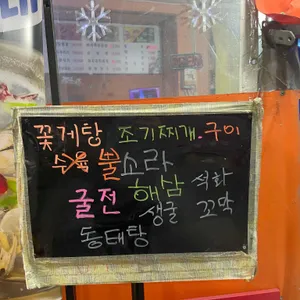 꽃게탕 조기찌개.구이
수육 뿔소라
굴전 해남 석화
생굴 꼬막
동태탕